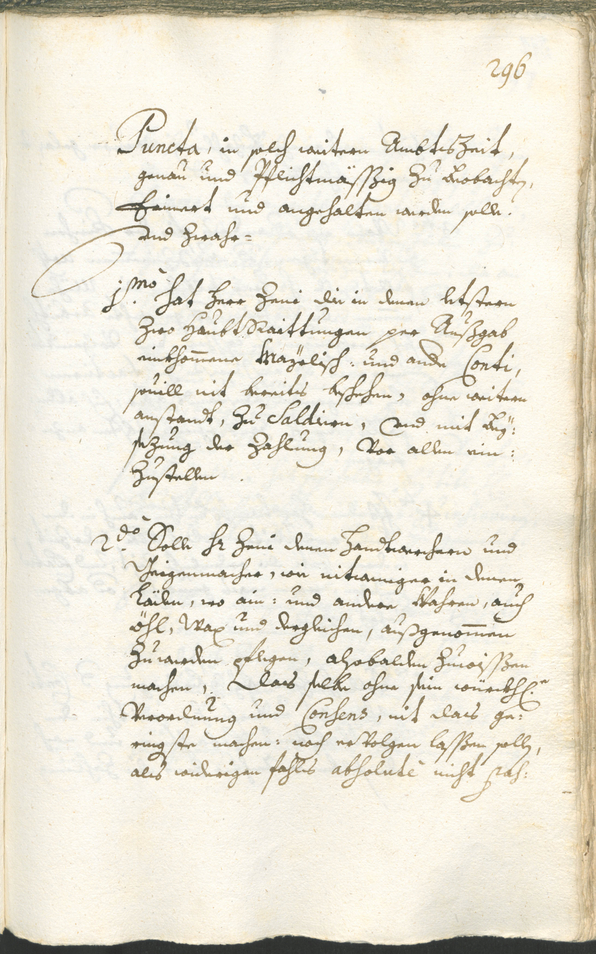 296
Puncta, in solch weitern Ambts Zeit,
genau und Pflichtmässig zu Beobachten,
Erinert und angehalten werden solle.
und zwahr=
jmo: hat herr Zeni die in denen letstern
zwo Haubt Raittungen per Außgab
einkhomene Mayrlisch: und ande Conti,
souill nit bereits beschehen, ohne weitern
anstandt, zu Saldirn, und mit Bey:
sezung der Zahlung, Vor allen ein:
zustellen.
2do: Solle hr Zeni denen Handtwerchern und
Zeigenmacher, wie nitweniger in denen
Läden, wo ein: und andere Wahren, auch
öhl, Wax und dergleichen, außgenommen
zuwerden pflegen, alsobalden zuwissen
machen, Das selbe ohne sein würckhl:en
Verordnung und Consens, nit das ge:
ringste machen: noch erVolgen lassen sollen,
als widerigen fahls absolutè nicht pass: